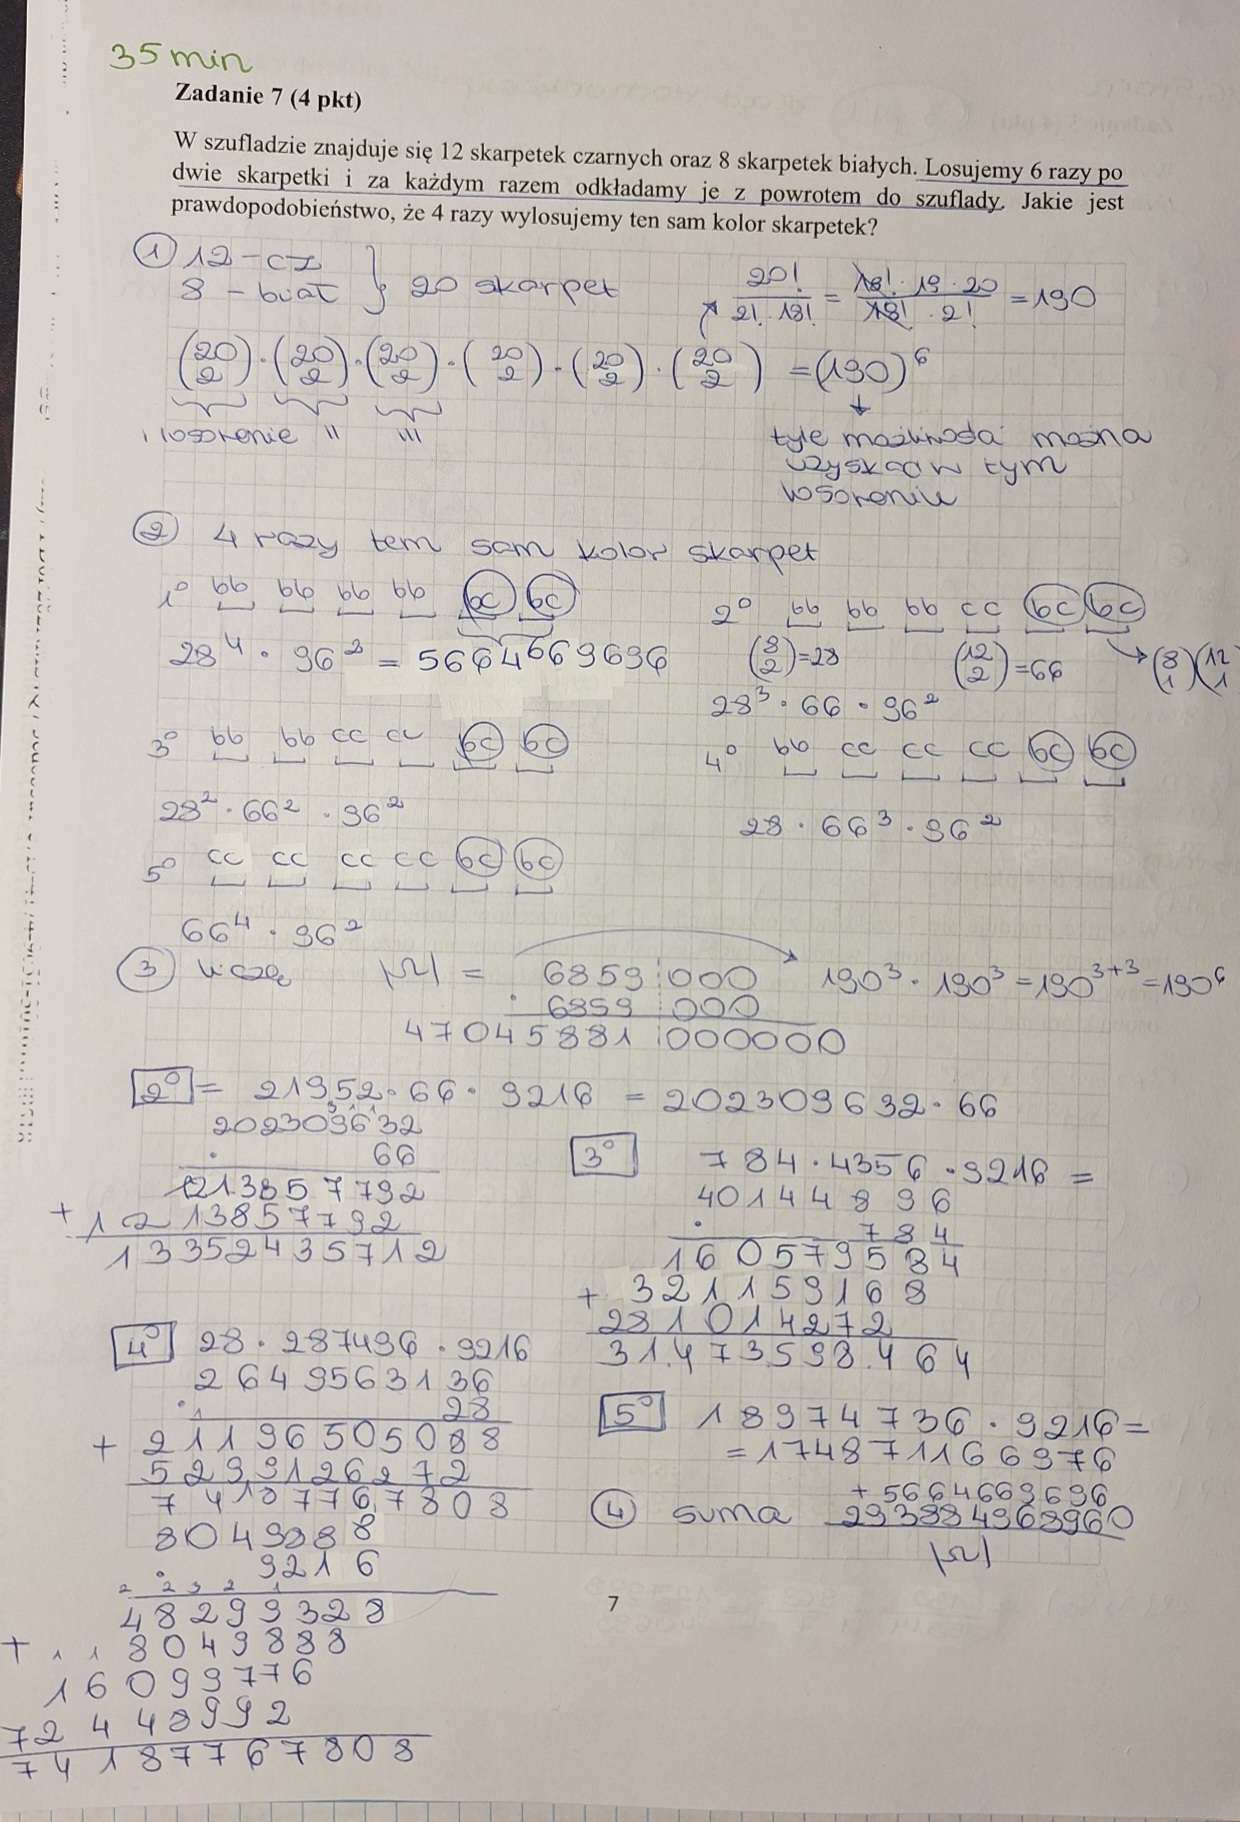 35 min
Zadanie 7 (4 pkt)
W szufladzie znajduje się 12 skarpetek czarnych oraz 8 skarpetek białych. Losujemy 6 razy po
dwie skarpetki i za każdym razem odkładamy je z powrotem do szuflady. Jakie jest
prawdopodobieństwo, że 4 razy wylosujemy ten sam kolor skarpetek?
① 12 - cz
8 - biał } 20 skarpet
20! / 2!·18! = 18!·19·20 / 18!·2! = 190
(20 2)·(20 2)·(20 2)·(20 2)·(20 2)·(20 2) = (190)^6
I losowanie II III
tyle możliwości można
uzyskać w tym
losowaniu
② 4 razy ten sam kolor skarpet
1° bb bb bb bb bc bc
28^4 · 96^2 = 5664669696
2° bb bb bb cc bc bc
(8 2)=28 (12 2)=66 → (8 1)(12 1
28^3 · 66 · 96^2
3° bb bb cc cc bc bc
28^2 · 66^2 · 96^2
4° bb cc cc cc bc bc
28 · 66^3 · 96^2
5° cc cc cc cc bc bc
66^4 · 96^2
③ liczę |Ω| = 6859 000
· 6859 000
47045881 000000
190^3 · 190^3 = 190^{3+3} = 190^6
2° = 21952 · 66 · 9216 = 202309632 · 66
202309632
· 66
1213857792
+ 1213857792
13352435712
3° 784 · 4356 · 9216 =
40144896
· 784
160579584
+ 321159168
281014272
31.473.598.464
4° 28 · 287496 · 9216
2649563136
· 28
+ 21196505088
5299126272
74187767808
8049888
· 9216
48299328
+ 8049888
16099776
72448992
74187767808
5° 18974736 · 9216 =
= 174871166976
+ 5664669696
④ suma 293884968960
|Ω|
7